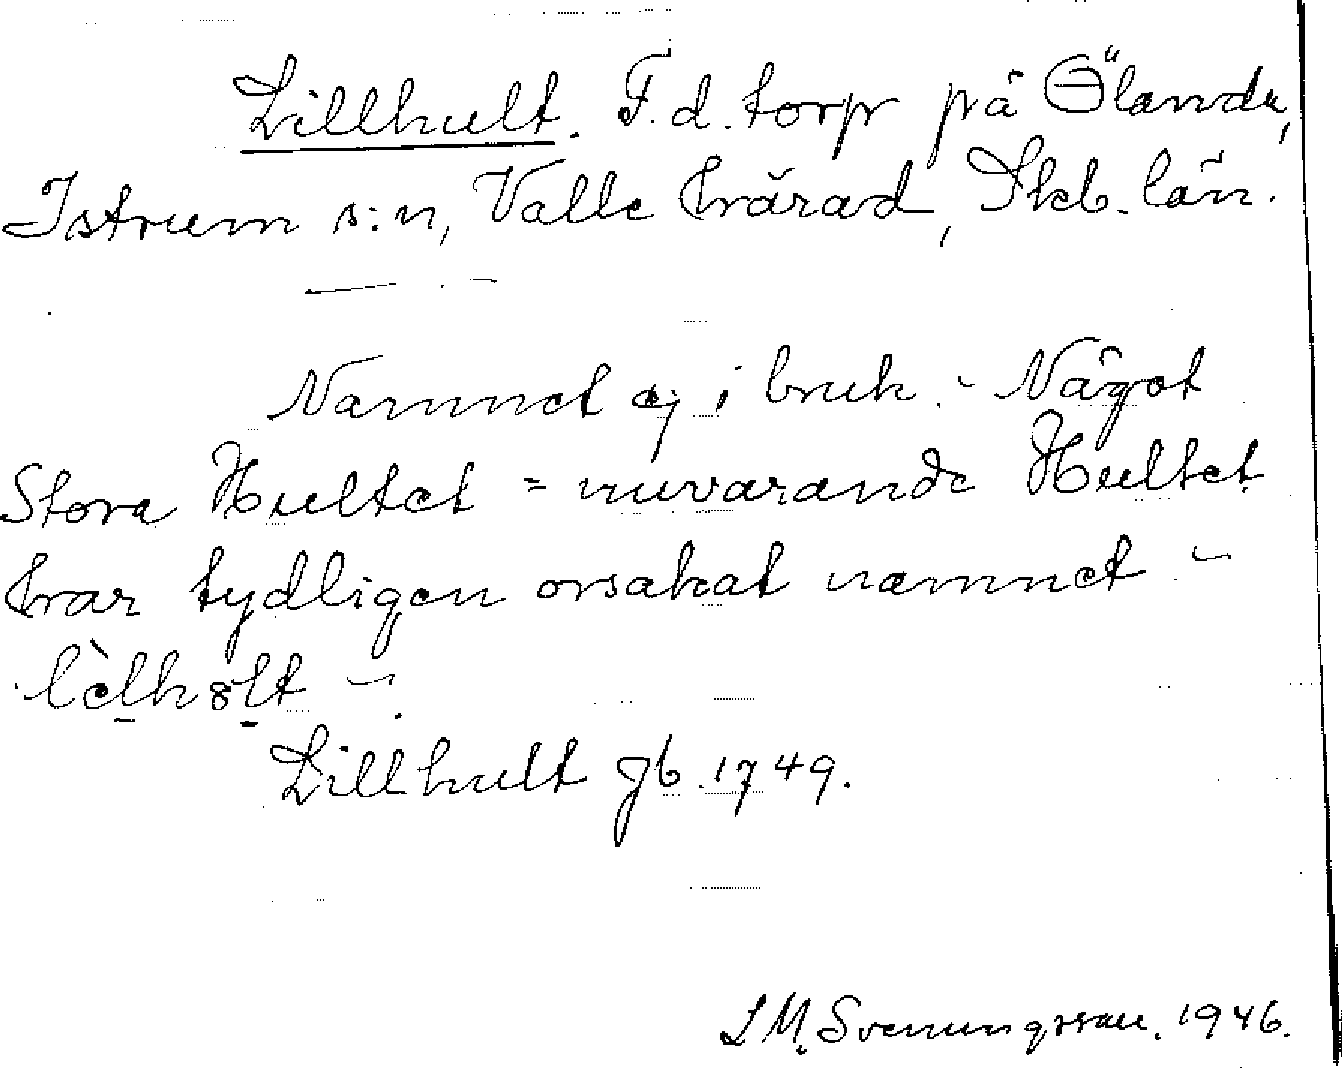 Lillhult. F.d. torp på Ölanda,
Istrum s:n, Valle härad, Skb. län.
Namnet ej i bruk. - Något
Stora Hultet = nuvarande Hultet
har tydligen orsakat namnet -
lèlhált -.
Lillhult gb. 1749.
L M. Svenungsson. 1946.